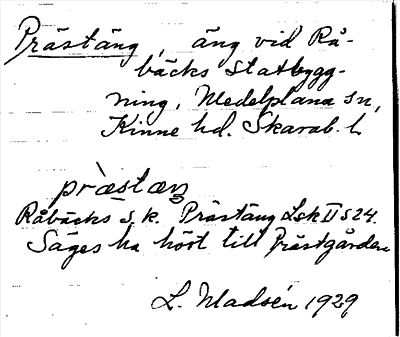 Prästäng, äng vid Rå-
bäcks Statbygg-
ning, Medelplana sn,
Kinne hd. Skarab. l.
præstæŋ
Råbäcks s.k. Prästäng Lsk II S 24.
Säges ha hört till Prästgården
L. Madsén 1929